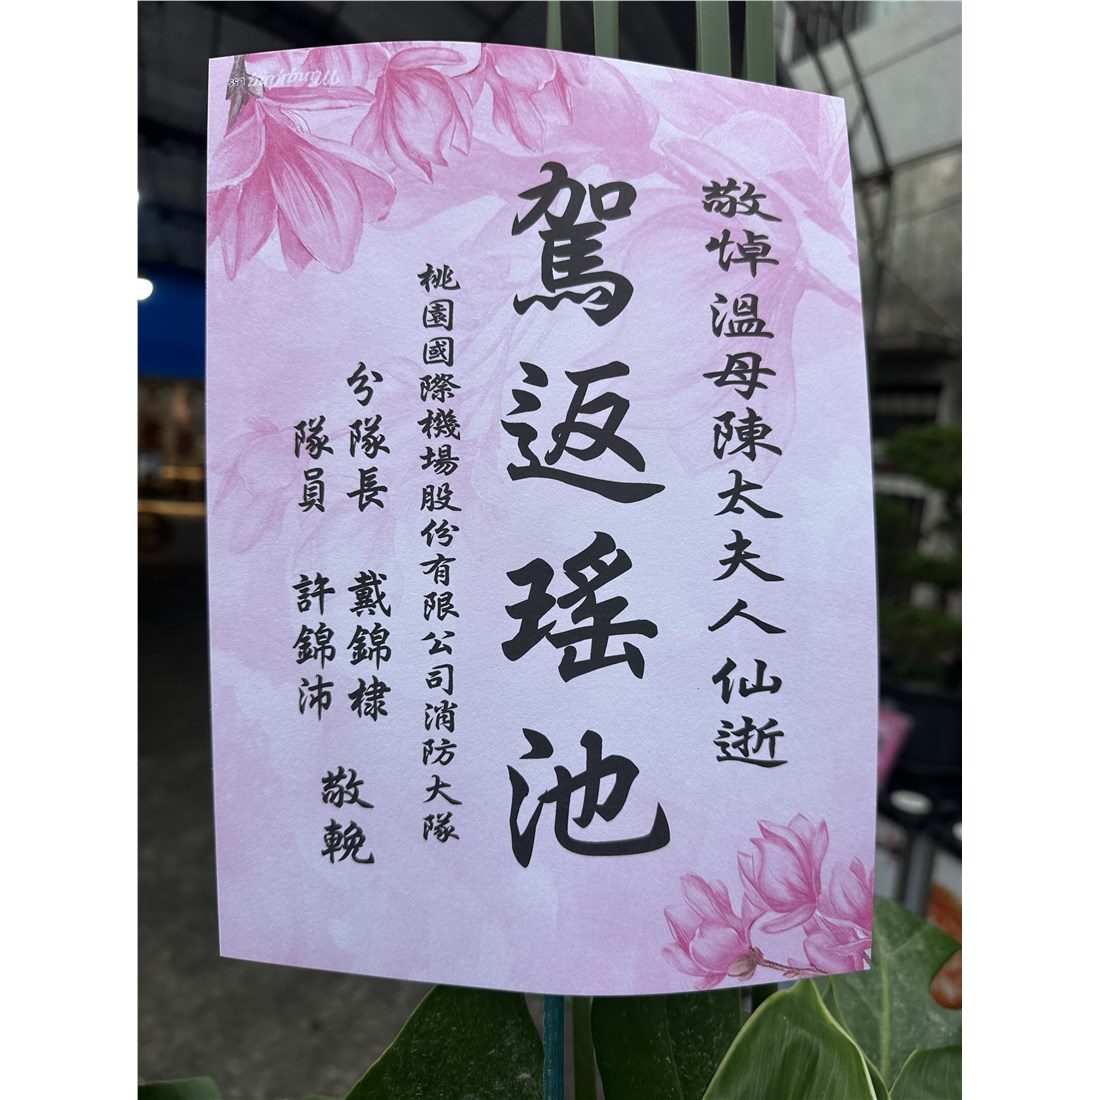 敬悼溫母陳太夫人仙逝
駕返瑤池
桃園國際機場股份有限公司消防大隊
分隊長 戴錦棣
隊員 許錦沛
敬輓